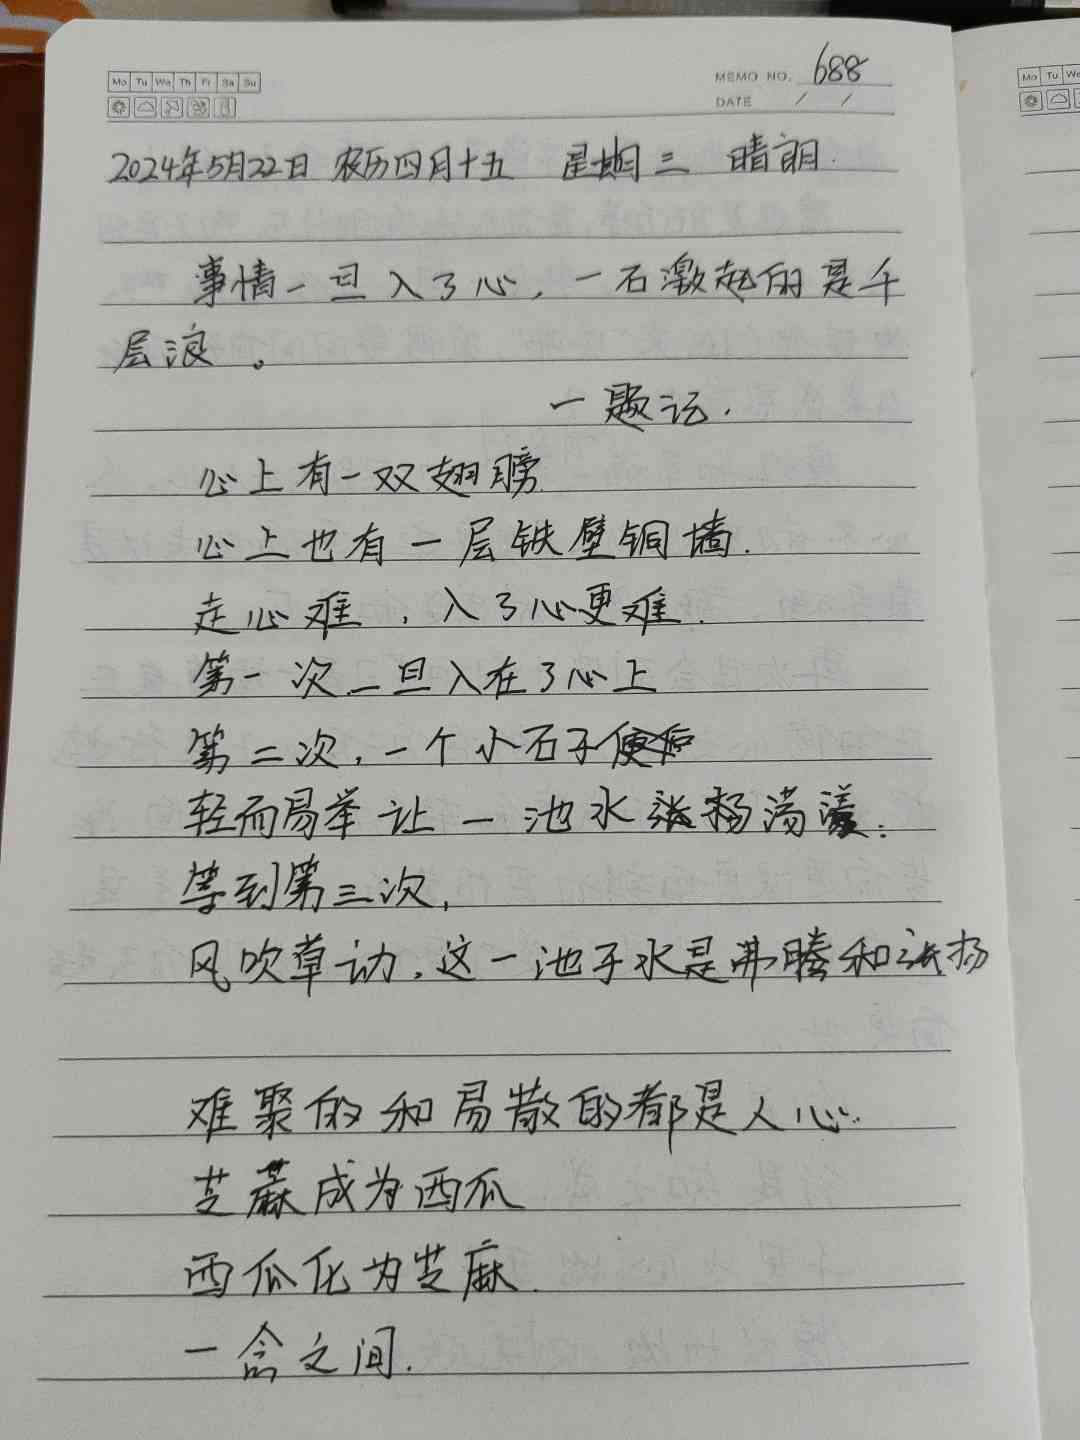 Mo Tu We Th Fr Sa Su
MEMO NO. 688
DATE / /
2024年5月22日 农历四月十五 星期三 晴朗.
事情一旦入了心，一石激起的是千
层浪。
一题记.
心上有一双翅膀
心上也有一层铁壁铜墙.
走心难，入了心更难.
第一次一旦入在了心上
第二次，一个小石子便
轻而易举让一池水张扬荡漾.
等到第三次，
风吹草动，这一池子水是沸腾和张扬
难聚的和易散的都是人心.
芝蔴成为西瓜
西瓜化为芝麻.
一念之间.
Mo Tu We